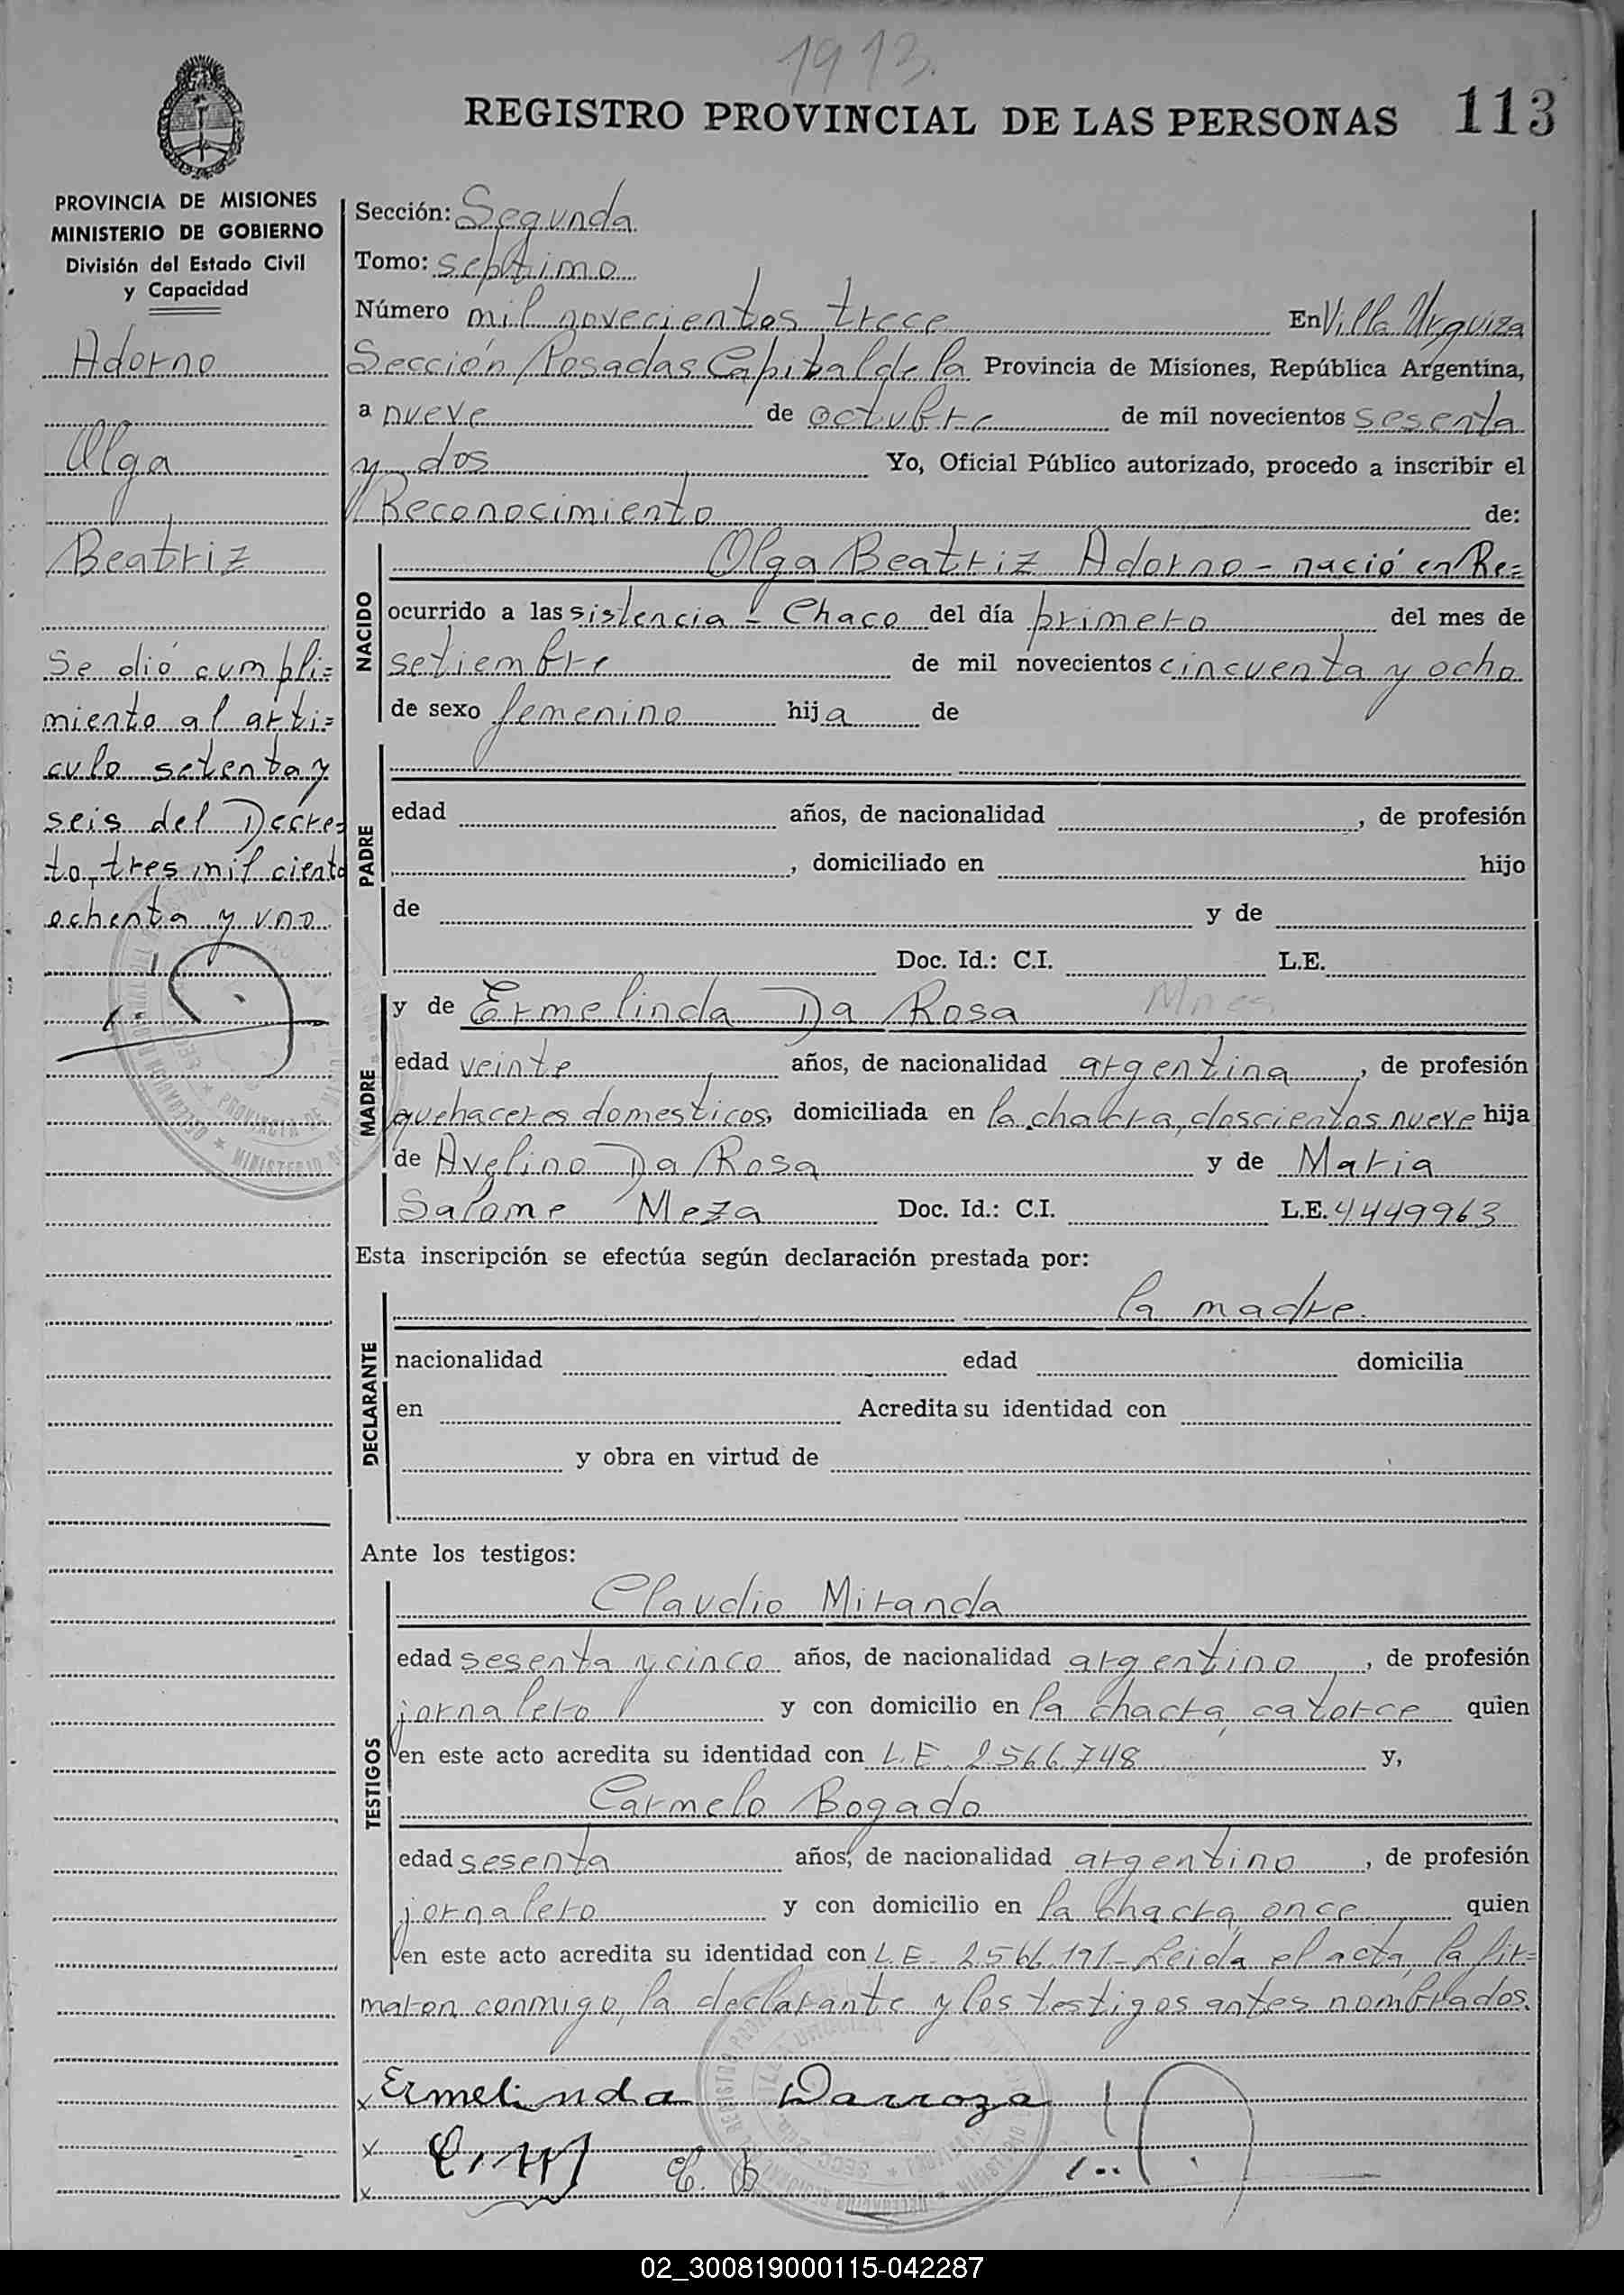 1913.
REGISTRO PROVINCIAL DE LAS PERSONAS 113
PROVINCIA DE MISIONES
MINISTERIO DE GOBIERNO
División del Estado Civil
y Capacidad
Adorno
Olga
Beatriz
Se dió cumpli=
miento al arti=
culo setenta y
seis del Decre=
to tres mil ciento
ochenta y uno
Sección: Segunda
Tomo: septimo
Número mil novecientos trece En Villa Urquiza
Sección Posadas Capital de la Provincia de Misiones, República Argentina,
a nueve de octubre de mil novecientos sesenta
y dos Yo, Oficial Público autorizado, procedo a inscribir el
Reconocimiento de:
NACIDO
Olga Beatriz Adorno - nació en Re=
ocurrido a las sistencia - Chaco del día primero del mes de
setiembre de mil novecientos cincuenta y ocho
de sexo femenino hija de
PADRE
edad años, de nacionalidad , de profesión
, domiciliado en hijo
de y de
Doc. Id.: C.I. L.E.
MADRE
y de Ermelinda Da Rosa Mnes
edad veinte años, de nacionalidad argentina, de profesión
quehaceres domesticos, domiciliada en la chacra, doscientos nueve hija
de Avelino Da Rosa y de Maria
Salome Meza Doc. Id.: C.I. L.E. 4449963
Esta inscripción se efectúa según declaración prestada por:
DECLARANTE
la madre.
nacionalidad edad domicilia
en Acredita su identidad con
y obra en virtud de
Ante los testigos:
TESTIGOS
Claudio Miranda
edad sesenta y cinco años, de nacionalidad argentino, de profesión
jornalero y con domicilio en la chacra, catorce quien
en este acto acredita su identidad con L.E. 2566748 y,
Carmelo Bogado
edad sesenta años, de nacionalidad argentino, de profesión
jornalero y con domicilio en la chacra, once quien
en este acto acredita su identidad con L.E. 2566.191 - Leida el acta, la fir=
maron conmigo, la declarante y los testigos antes nombrados.
x Ermelinda Darroza
x C. M
x C. B
02_300819000115-042287